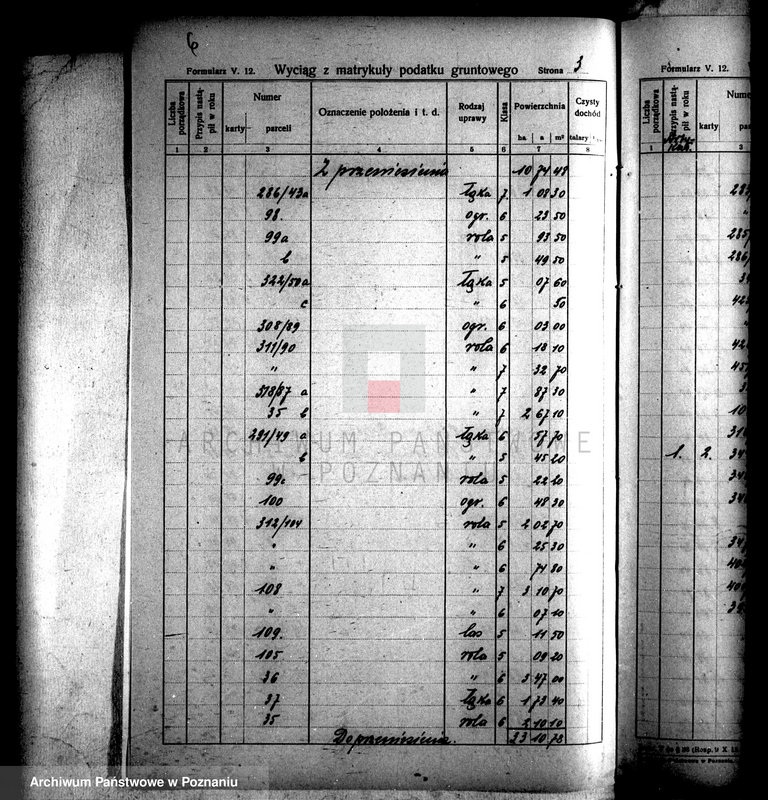 6
Formularz V. 12. Wyciąg z matrykuły podatku gruntowego Strona 3
Liczba porządkowa Przypis nastąpił w roku Numer karty parceli Oznaczenie położenia i t. d. Rodzaj uprawy Klasa Powierzchnia ha a m² Czysty dochód talary
1 2 3 4 5 6 7 8
Z przeniesienia 10 74 48
286/43a łąka 7 1 08 30
98. ogr. 6 23 50
99a rola 5 93 50
b " 5 49 50
322/50a łąka 5 07 60
c " 6 50
308/89 ogr. 6 03 00
311/90 rola 6 18 10
" " 7 32 70
318/87 a " 7 87 30
35 b " 7 2 67 10
291/49 a łąka 6 57 70
b " 5 45 20
99c rola 5 22 20
100 ogr. 6 48 30
312/104 rola 5 2 02 70
" " 6 25 30
" " 6 74 80
108 " 7 3 10 70
" " 6 07 10
109. las 5 11 50
105 rola 5 09 20
36 " 6 3 47 00
37 łąka 6 1 73 40
35 rola 6 2 10 10
Do przeniesienia. 23 10 78
Formularz V. 12.
Liczba porządkowa Przypis nastąpił w roku karty
1 2 3
1. 2.
ARCHIWUM PAŃSTWOWE
POZNAŃ
Archiwum Państwowe w Poznaniu